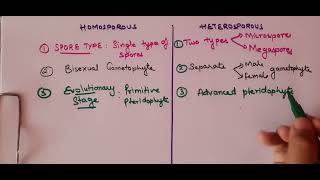 HOMOSPOROUS
① SPORE TYPE: Single types of
spores
② Bisexual Gametophyte
③ Evolutionary : Primitive
Stage Pteridophyte
HETEROSPOROUS
① Two types Microspore
Megaspore
② Separate male gametophyte
female
③ Advanced pteridophyte